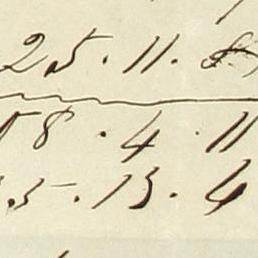 25 . 11 . 8
8 . 4 . 11
5 . 13 . 4